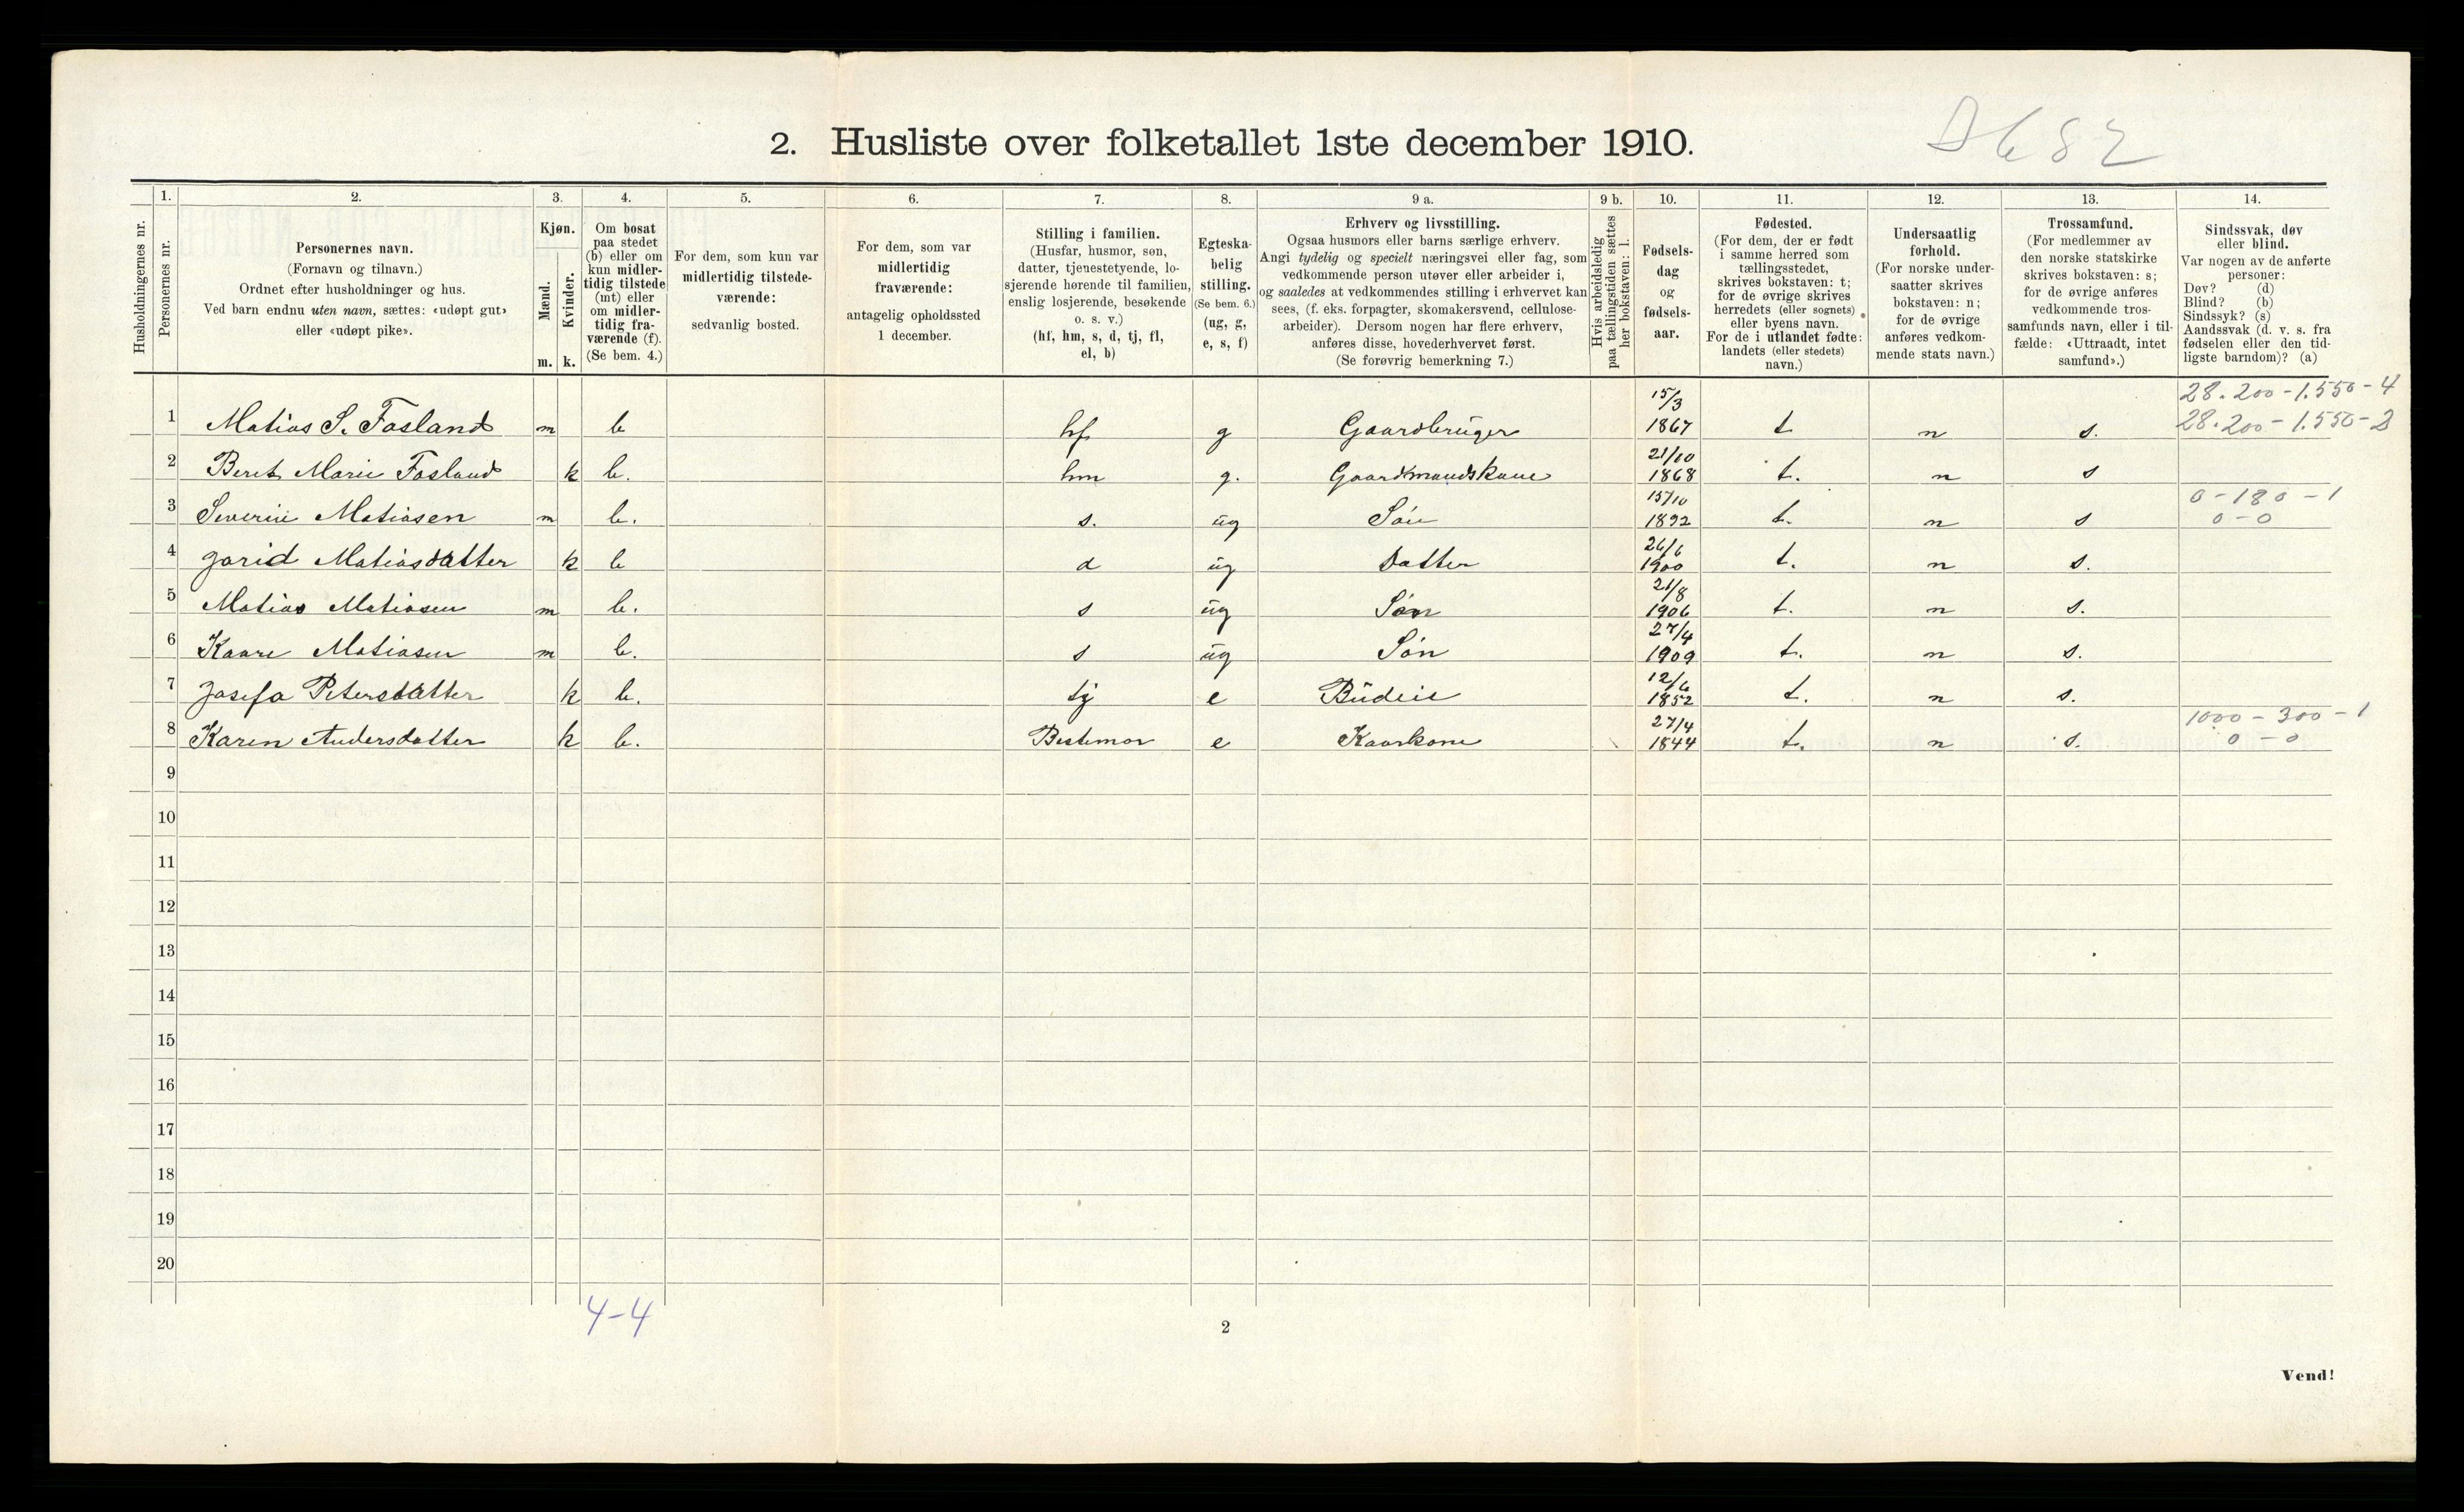 D 682
2. Husliste over folketallet 1ste december 1910.
1. 2. 3. 4. 5. 6. 7. 8. 9 a. 9 b. 10. 11. 12. 13. 14.
Husholdningernes nr.
Personernes nr.
Personernes navn.
(Fornavn og tilnavn.)
Ordnet efter husholdninger og hus.
Ved barn endnu uten navn, sættes: «udøpt gut»
eller «udøpt pike».
Kjøn.
Mænd.
Kvinder.
m. k.
Om bosat
paa stedet
(b) eller om
kun midler-
tidig tilstede
(mt) eller
om midler-
tidig fra-
værende (f).
(Se bem. 4.)
For dem, som kun var
midlertidig tilstede-
værende:
sedvanlig bosted.
For dem, som var
midlertidig
fraværende:
antagelig opholdssted
1 december.
Stilling i familien.
(Husfar, husmor, søn,
datter, tjenestetyende, lo-
sjerende hørende til familien,
enslig losjerende, besøkende
o. s. v.)
(hf, hm, s, d, tj, fl,
el, b)
Egteska-
belig
stilling.
(Se bem. 6.)
(ug, g,
e, s, f)
Erhverv og livsstilling.
Ogsaa husmors eller barns særlige erhverv.
Angi tydelig og specielt næringsvei eller fag, som
vedkommende person utøver eller arbeider i,
og saaledes at vedkommendes stilling i erhvervet kan
sees, (f. eks. forpagter, skomakersvend, cellulose-
arbeider). Dersom nogen har flere erhverv,
anføres disse, hovederhvervet først.
(Se forøvrig bemerkning 7.)
Hvis arbeidsledig
paa tællingstiden sættes
her bokstaven: l.
Fødsels-
dag
og
fødsels-
aar.
Fødested.
(For dem, der er født
i samme herred som
tællingsstedet,
skrives bokstaven: t;
for de øvrige skrives
herredets (eller sognets)
eller byens navn.
For de i utlandet fødte:
landets (eller stedets)
navn.)
Undersaatlig
forhold.
(For norske under-
saatter skrives
bokstaven: n;
for de øvrige
anføres vedkom-
mende stats navn.)
Trossamfund.
(For medlemmer av
den norske statskirke
skrives bokstaven: s;
for de øvrige anføres
vedkommende tros-
samfunds navn, eller i til-
fælde: «Uttraadt, intet
samfund».)
Sindssvak, døv
eller blind.
Var nogen av de anførte
personer:
Døv? (d)
Blind? (b)
Sindssyk? (s)
Aandssvak (d. v. s. fra
fødselen eller den tid-
ligste barndom)? (a)
15/3 28.200-1.550-4
1 Matias S. Fosland m b hf g Gaardbruger 1867 t n s. 28.200-1.550-2
21/10
2 Beret Marie Fosland k b. hm g. Gaardmandskone 1868 t. n s
15/10 0-180-1
3 Severin Matiasen m b. s. ug Søn 1892 t. n s 0-0
26/6
4 Jorid Matiasdatter k b d ug Datter 1900 t. n s.
21/8
5 Matias Matiasen m b. s ug Søn 1906 t. n s.
27/4
6 Kaare Matiasen m b. s ug Søn 1909 t. n s.
12/6
7 Josefa Petersdatter k b. tj e Budeie 1852 t. n s.
27/4 1000-300-1
8 Karen Andersdatter k b. Bestemor e Kaarkone 1844 t. n s. 0-0
9
10
11
12
13
14
15
16
17
18
19
20
4-4
2
Vend!